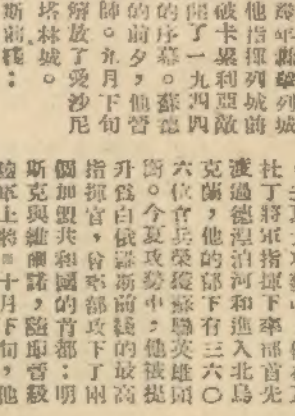 他指揮列城前
破卡累利亞敵
了一九四四
的序幕。蘇德
的前夕,他晉
師。九月下旬
解放了愛沙尼
塔林城。
斯前綫:
杜丁將軍指揮下率部首先
渡過德湼泊河和進入北烏
克蘭,他的部下有三六〇
六位官兵榮獲蘇聯英雄頭
銜。今夏攻勢中,他被提
升爲白俄羅斯前綫的最高
指揮官,曾率部攻下了兩
個加盟共和國的首都:明
斯克與維爾諾,隨即晉級
陸軍上將。十月下旬,他